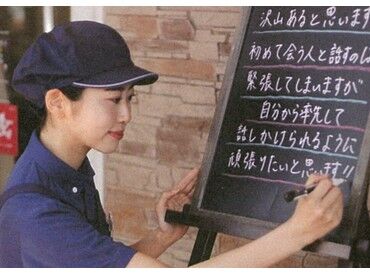 沢山あると思います
初めて会う人と話すのは
緊張してしまいますが
自分から率先して
話しかけられるように
頑張りたいと思います!!